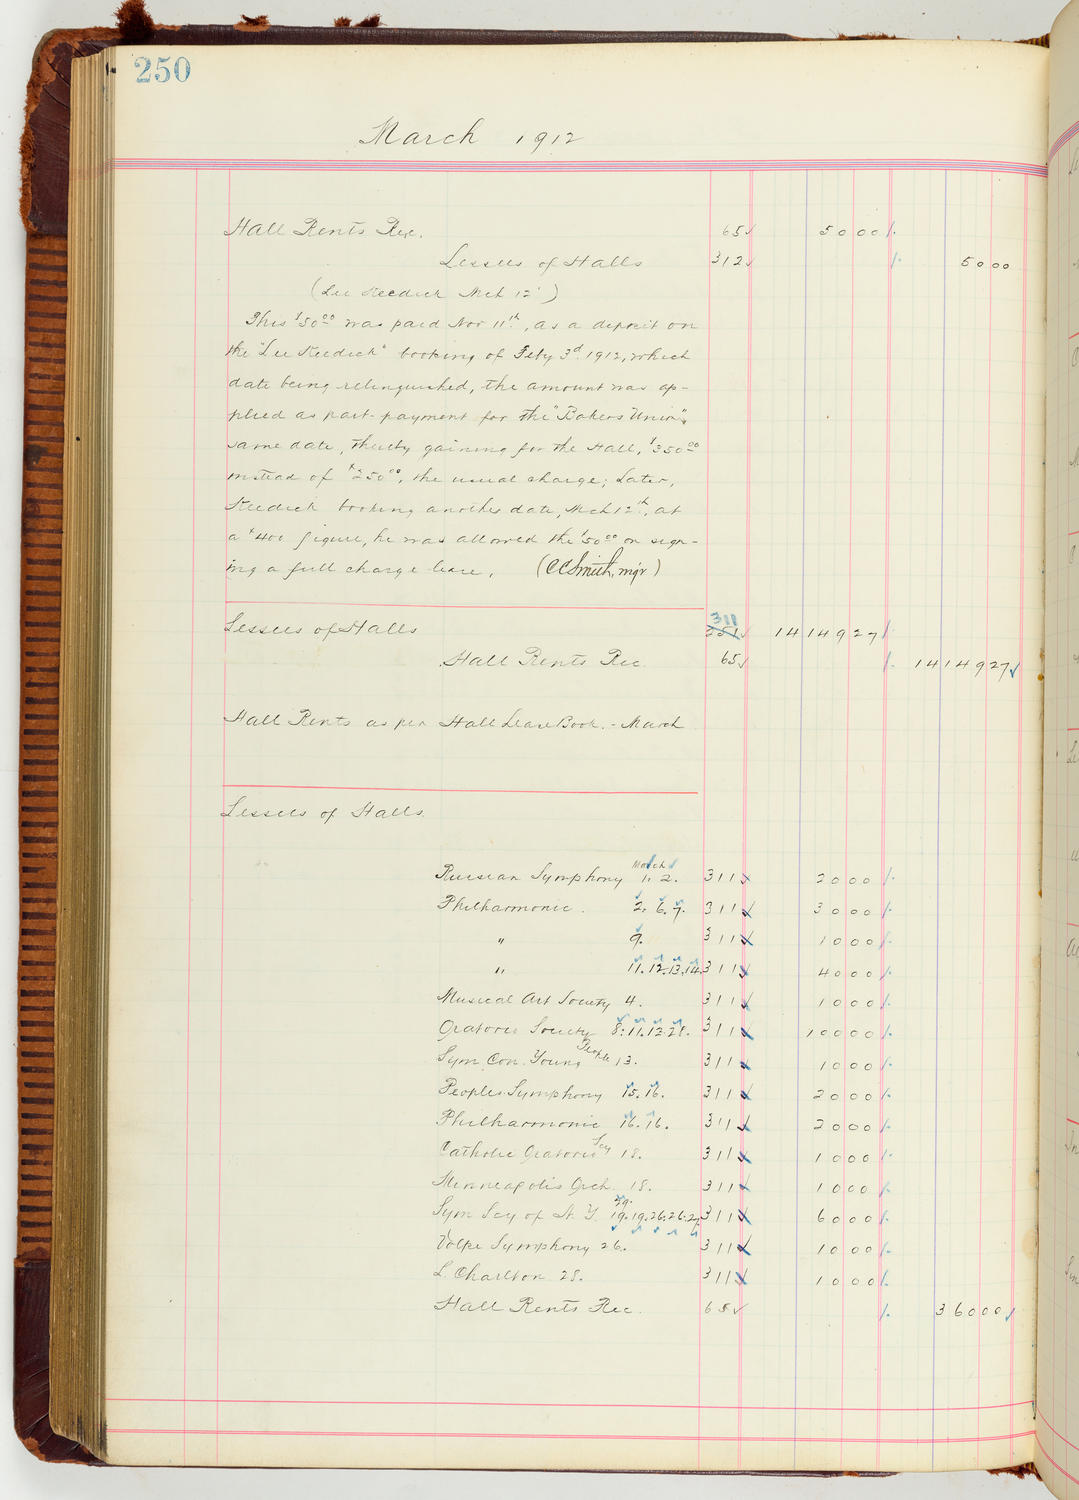 250
March 1912
Hall Rents Rec. 65 50 00
Lessees of Halls 312 50 00
(Lee Keedick Mch 12")
This $50.00 was paid Nov 11th, as a deposit on
the "Lee Keedick" booking of Feby 3d. 1912, which
date being relinquished, the amount was ap-
plied as part-payment for the "Bakers Union",
same date, thereby gaining for the Hall, $350.00
instead of $250.00, the usual charge; Later,
Keedick booking another date, Mch 12th, at
a $400 figure, he was allowed the $50.00 on sign-
ing a full charge lease. (CCSmith, mgr)
Lessees of Halls 311 351 14149 27
Hall Rents Rec 65 14149 27
Hall Rents as per Hall Lease Book. - March
Lessees of Halls.
March
Russian Symphony 1. 2. 311 20 00
Philharmonic. 2. 6. 7. 311 30 00
" 9. 311 10 00
" 11. 12. 13. 14. 311 40 00
Musical Art Society 4. 311 10 00
Oratorio Society 8. 11. 12. 28. 311 100 00
Sym. Con. Young People 13. 311 10 00
Peoples Symphony 15. 16. 311 20 00
Philharmonic 16. 16. 311 20 00
Catholic Oratorio Scy 18. 311 10 00
Minneapolis Orch. 18. 311 10 00
29.
Sym Scy of N. Y. 19. 19. 26. 26. 27. 311 60 00
Volpe Symphony 26. 311 10 00
L. Charlton 28. 311 10 00
Hall Rents Rec. 65 360 00